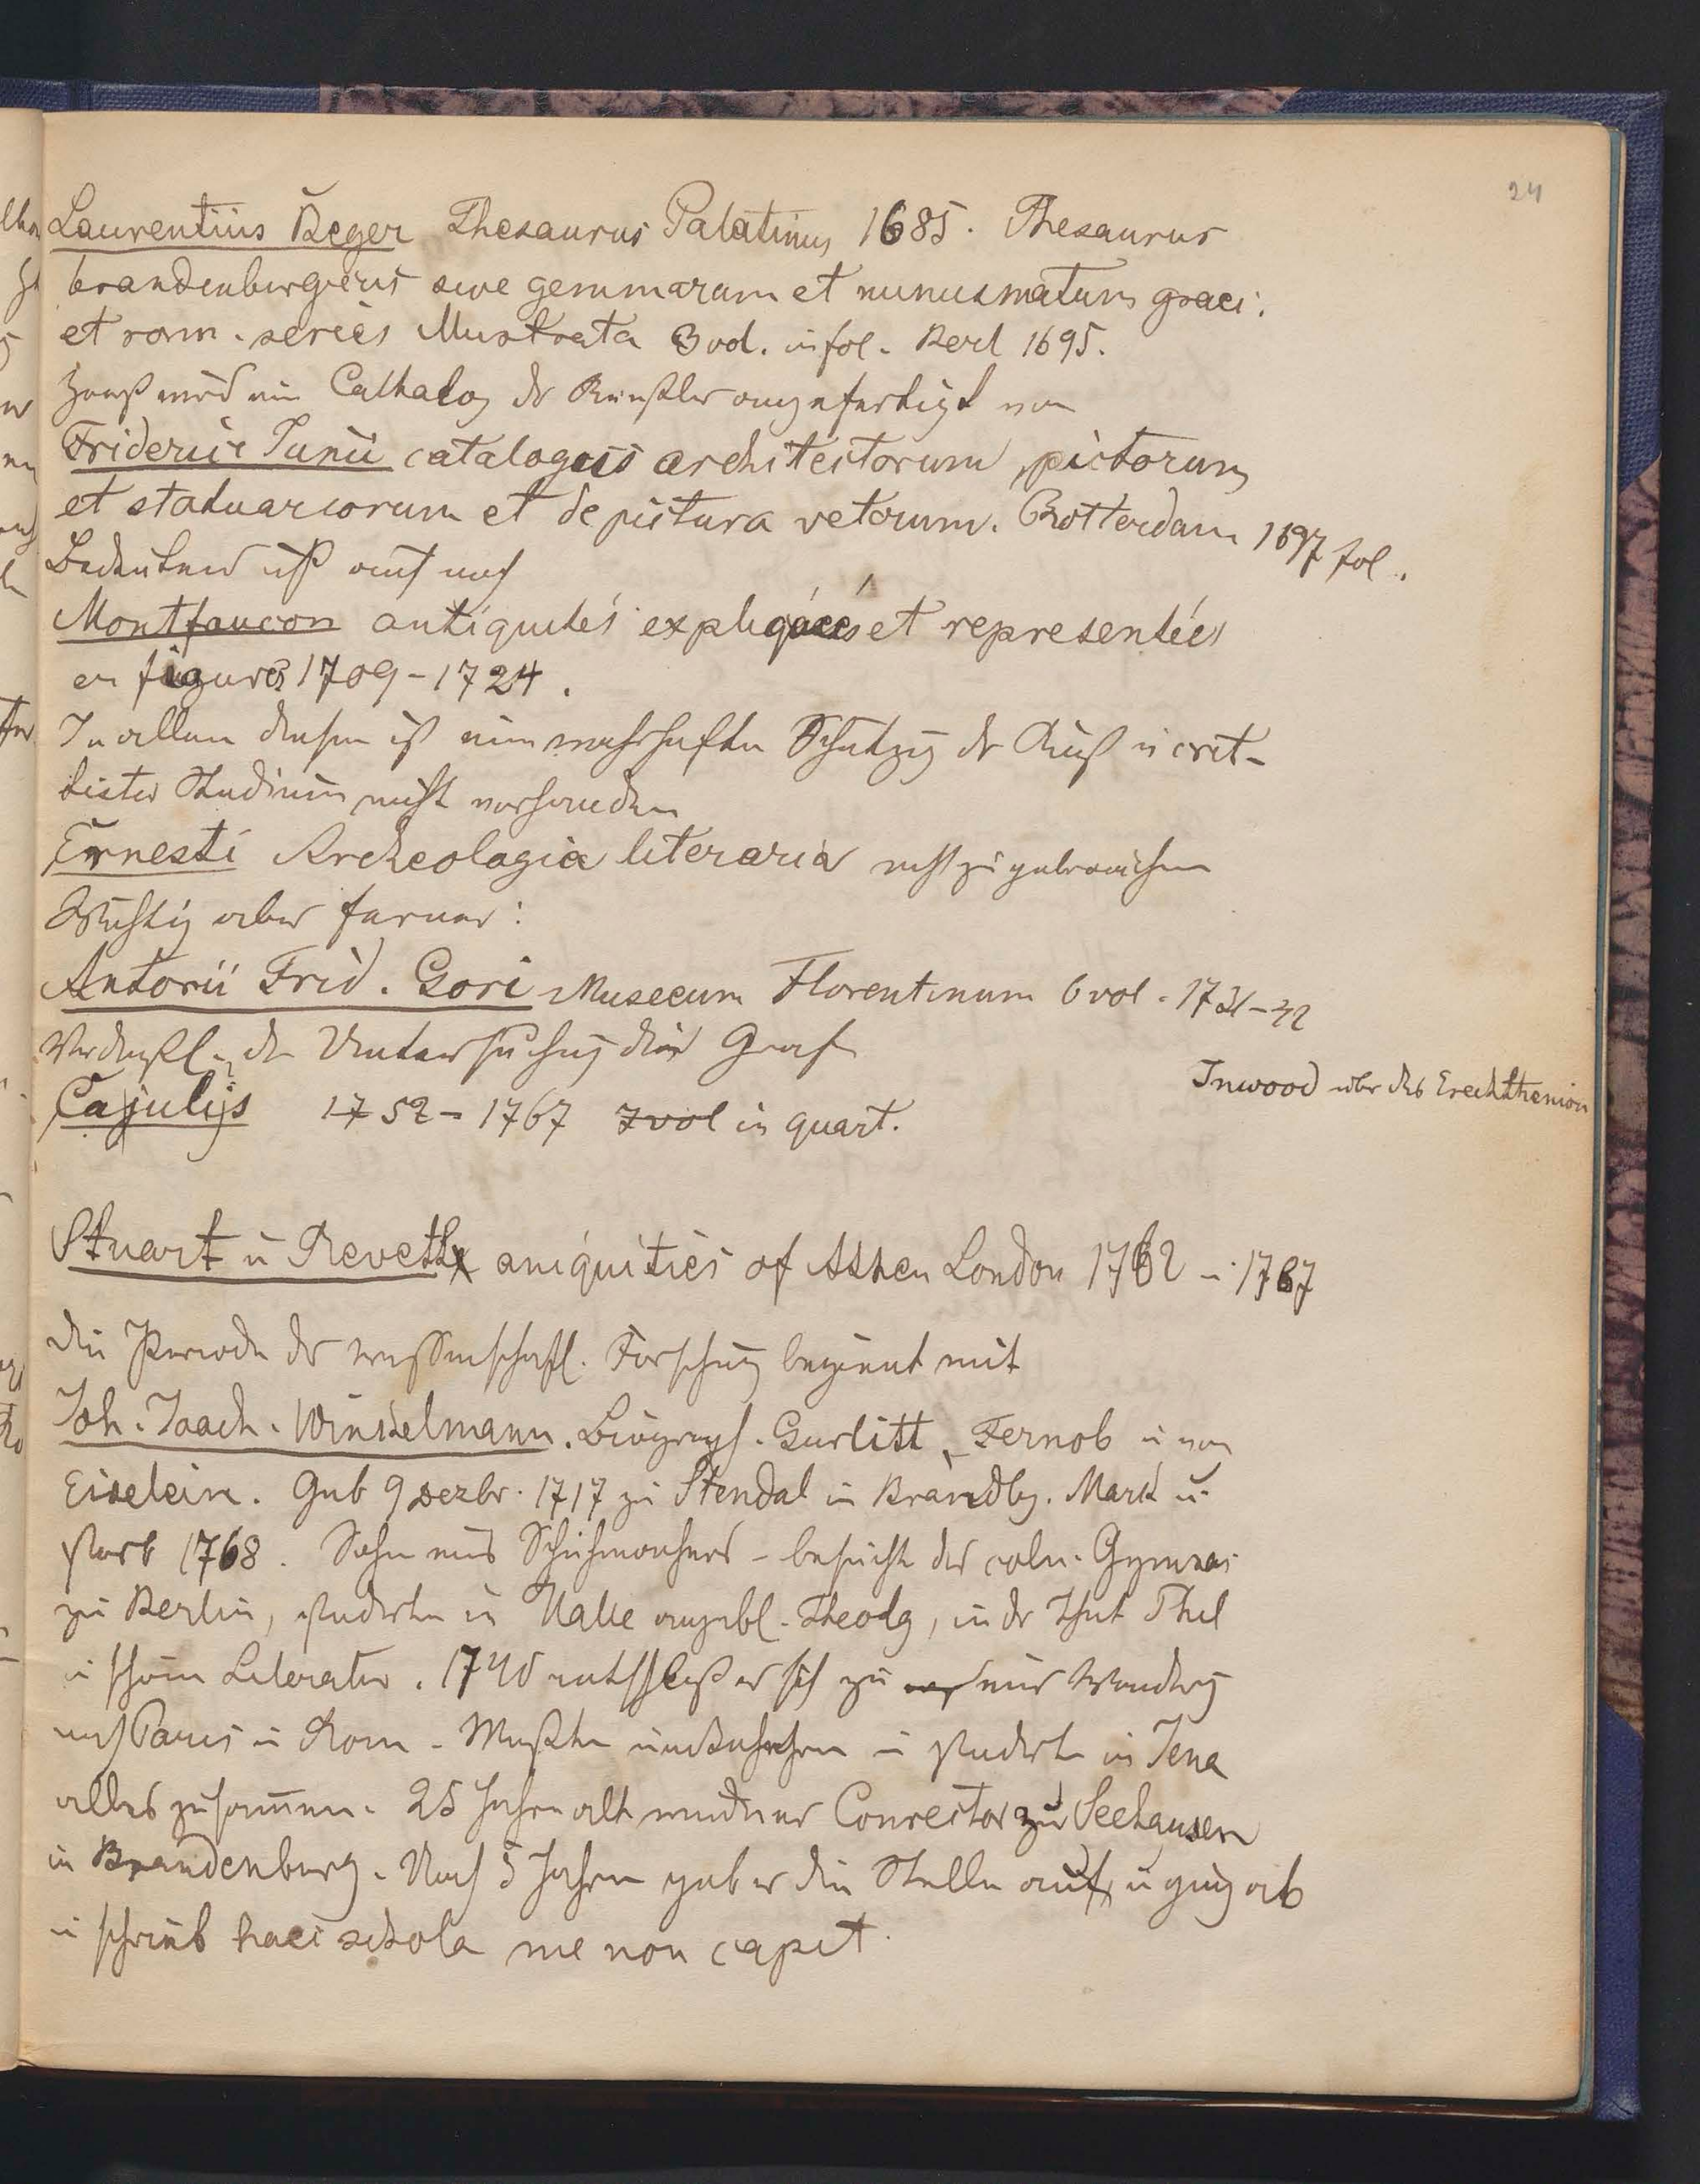 24
Laurentius Beger Thesaurus Palatinus 1685. Thesaurus
brandenburgicus sive gemmarum et numismatum graec.
et rom. series illustrata 3 vol. in fol. Berl 1695.
Zuerst wird ein Cathalog der Künstler angefertigt von
Friderici Junii catalogus architectorum, pictorum
et statuariorum et de pictura veterum. Rotterdam 1697 fol.
Bedeutend ist auch noch
Montfaucon antiquités expliquées et representées
en figures 1709-1724.
In allem diesem ist eine wahrhafte Schätzg der Kunst u crit-
tisches Studium nicht vorhanden
Ernesti Archeologia literaria nicht zu gebrauchen
Wichtig aber ferner:
Antonii Frid. Gori Museeum Florentinum 6 vol. 1731-42
Verdienstl. die Untersuchung des Graf
Cajulijs 1752-1767 7 vol in quart.
Inwood über das Erechtheion
Stuart u Revett aniquities of Athen London 1762 - 1787
Die Periode der wissenschaftl. Forschung beginnt mit
Joh. Joach. Winkelmann. Biograph. Gurlitt, Fernob u von
Eiselein. Geb 9 Dezbr. 1717 zu Stendal in Brandbg. Mark u.
starb 1768. Sohn eines Schuhmachers - besucht das coln. Gymnas
zu Berlin, studirte in Halle angebl. Theolg, in der That Phil
u schöne Literatur. 1740 entschloß er sich zu einer Wandrg
nach Paris u Rom. Mußte umkehren u studirte in Jena
alles zusammen. 25 Jahre alt wurde er Conrector zu Seehausen
in Brandenburg. Nach 5 Jahren gab er die Stelle auf, u ging ab
u schrieb haec schola me non capit.